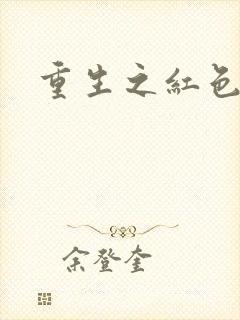 重生之紅色
余登奎